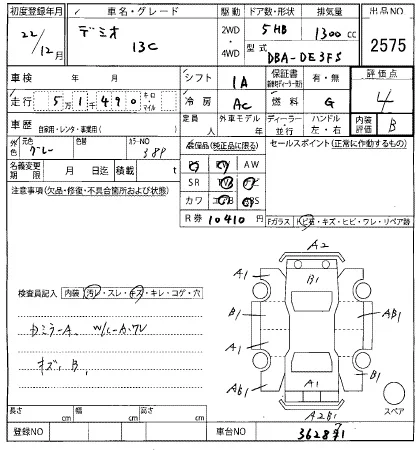 初度登録年月 車名・グレード 駆動 ドア数・形状 排気量 出品NO
22/12月 デミオ 13C 2WD・4WD 5HB 1300cc 2575
型式 DBA-DE3FS
車検 年 月 シフト 1A 保証書 有・無 評価点
走行 5万1千490 キロ・マイル 冷房 AC 燃料 G 4
車歴 自家用・レンタ・事業用( ) 定員 人 外車モデル 年 ディーラー・並行 ハンドル 左・右 内装評価 B
外色 元色 グレー 色替 カラーNO 38P 装備品(純正品に限る) セールスポイント(正常に作動するもの)
名義変更期限 月 日迄 積載 t PS PW AW
注意事項(欠品・修復・不具合箇所および状態) SR TV ナビ
カワ エアB ABS
R券 10410円 Fガラス トビ石・キズ・ヒビ・ワレ・リペア跡
A2
A1 B1
検査員記入 内装 汚レ・スレ・キズ・キレ・コゲ・穴
B1 AB1
カミラーA
A1
キズ B1
AB1 A1 B1
A2B1 スペア
長さ cm 幅 cm 高さ cm
登録NO 車台NO